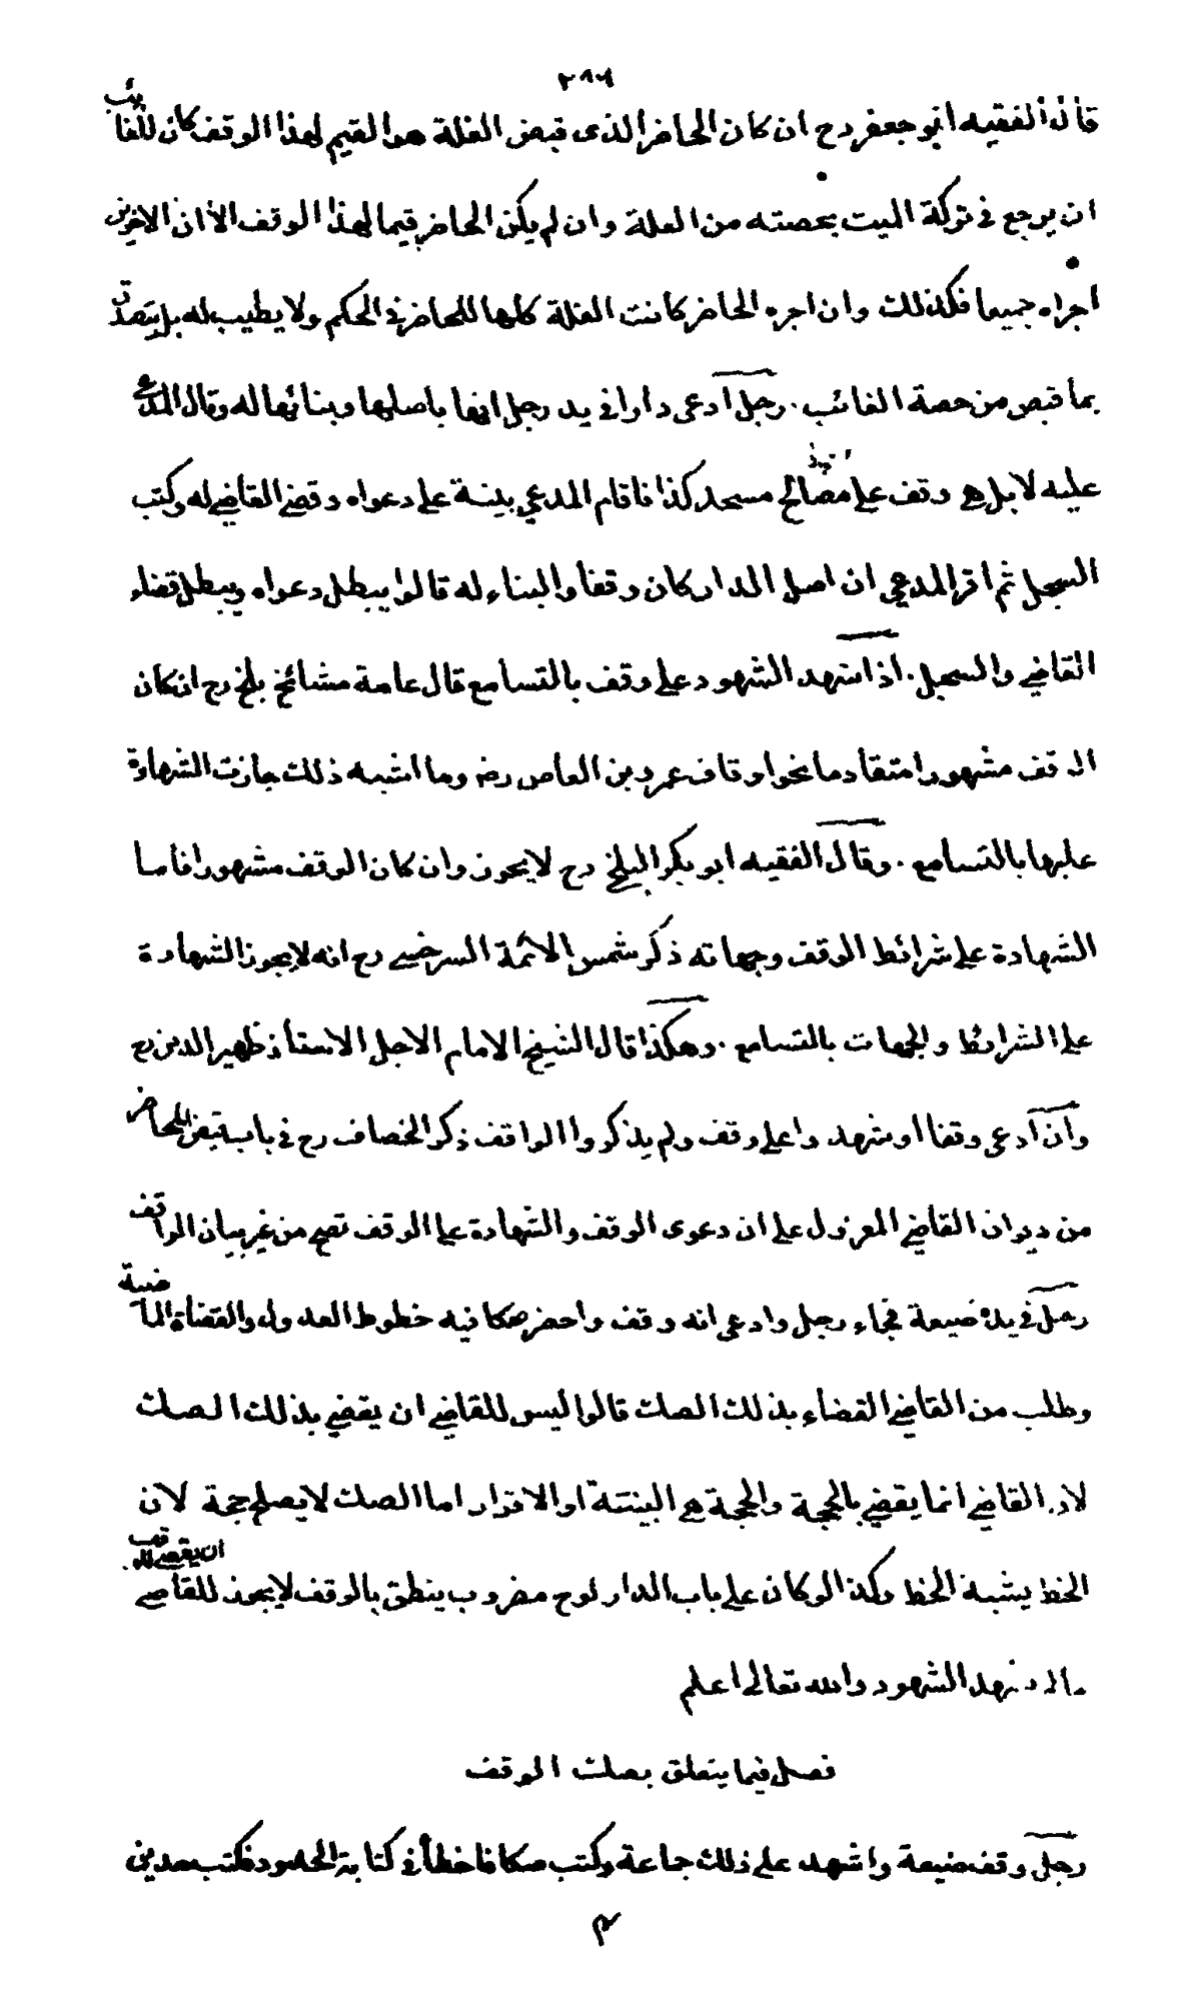 ٢٩٦
قال الفقيه ابو جعفر رح ان كان الحاضر الذى قبض الغلة هو القيم لهذا الوقف كان للغائب
ان يرجع فى تركة الميت بحصته من الغلة وان لم يكن الحاضر قيما لهذا الوقف الا ان الاخوين
اجراه جميعا فكذلك وان اجره الحاضر كانت الغلة كلها للحاضر فى الحكم ولا يطيب له بل يتصدق
بما قبض من حصة الغائب . رجل ادعى دارا فى يد رجل انها باصلها وبنائها له وقال المدعى
عليه لا بل هى وقف على مصالح مسجد كذا فاقام المدعي بينة على دعواه وقضى القاضي له وكتب
السجل ثم اقر المدعي ان اصل الدار كان وقفا والبناء له قالوا يبطل دعواه ويبطل قضاء
القاضي والسجل . اذا شهد الشهود على وقف بالتسامع قال عامة مشائخ بلخ رح ان كان
الوقف مشهورا متقادما نحو اوقاف عمرو بن العاص رضه وما اشبه ذلك جازت الشهادة
عليها بالتسامع . وقال الفقيه ابو بكر البلخي رح لا يجوز وان كان الوقف مشهورا فاما
الشهادة على شرائط الوقف وجهاته ذكر شمس الائمة السرخسي رح انه لا يجوز الشهادة
على الشرائط والجهات بالتسامع . وهكذا قال الشيخ الامام الاجل الاستاذ ظهير الدين رح
وان ادعى وقفا او شهد وا على وقف ولم يذكروا الواقف ذكر الخصاف رح فى باب قبض المحاضر
من ديوان القاضي المعزول على ان دعوى الوقف والشهادة على الوقف تصح من غير بيان الواقف
رجل فى يده ضيعة فجاء رجل وادعى انه وقف واحضر صكا فيه خطوط العدول والقضاة الماضية
وطلب من القاضي القضاء بذلك الصك قالوا ليس للقاضي ان يقضي بذلك الصك
لان القاضي انما يقضي بالحجة والحجة هى البينة او الاقرار اما الصك لا يصلح حجة لان
الخط يشبه الخط وكذا لو كان على باب الدار لوح مضروب ينطق بالوقف لا يجوز للقاضي ان يقضى بالوقف
مالم يشهد الشهود والله تعالى اعلم
فصل فيما يتعلق بصك الوقف
رجل وقف ضيعة واشهد على ذلك جماعة وكتب صكا فاخطأ فى كتابة الحدود فكتب حدين